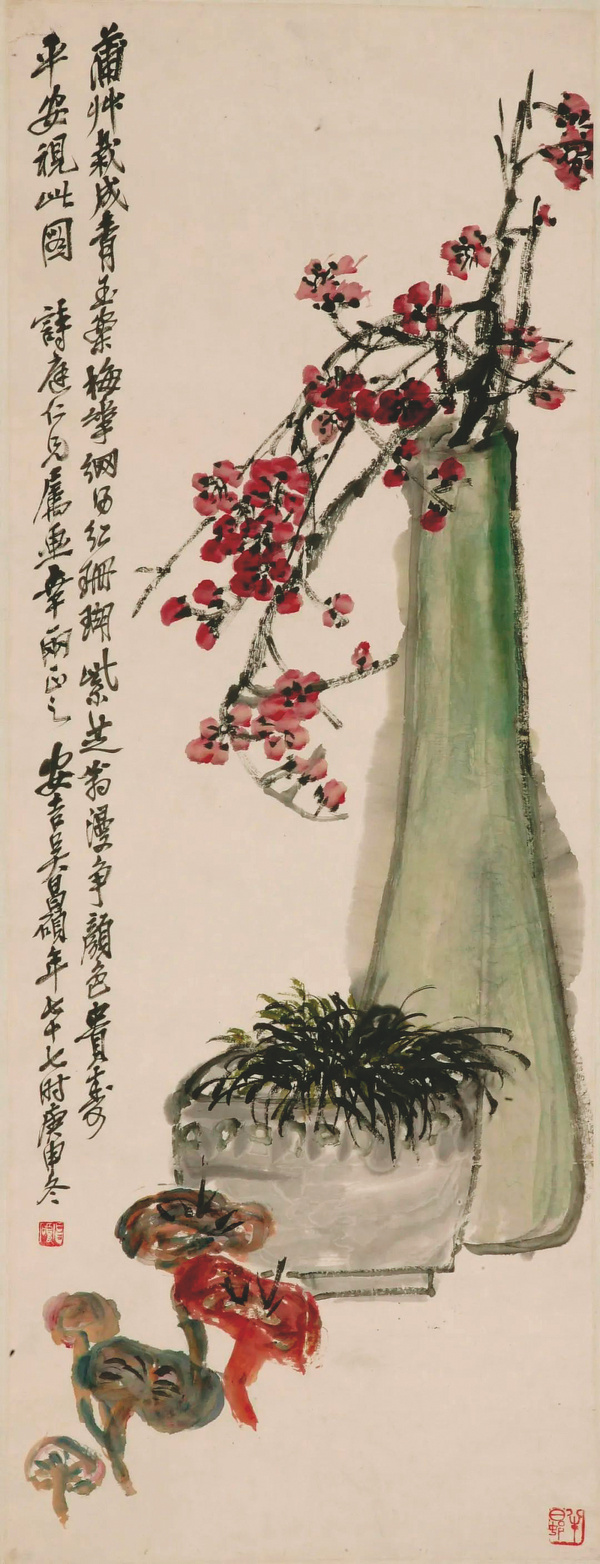 蒲艸栽成青玉葉梅華網出紅珊瑚紫芝翁漫爭顏色貴壽
平安視此圖 詩庭仁兄屬畫幸兩正之 安吉吳昌碩年七十七時庚申冬
半日邨